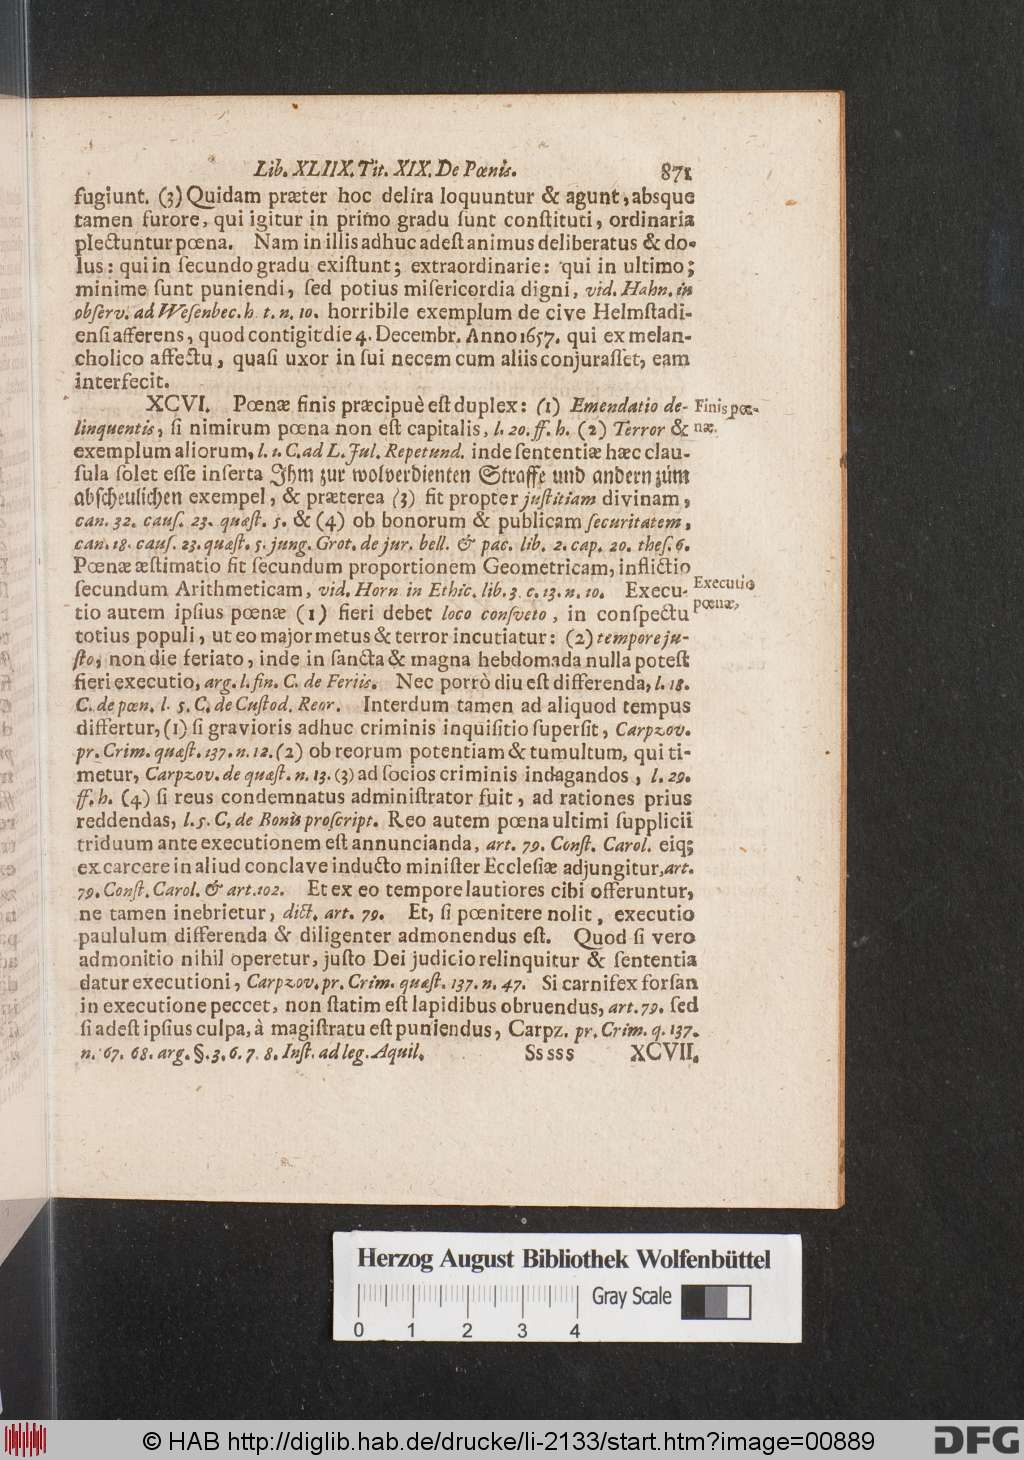 Lib. XLIIX. Tit. XIX. De Pœnis. 871
fugiunt. (3) Quidam præter hoc delira loquuntur & agunt, absque
tamen furore, qui igitur in primo gradu ſunt conſtituti, ordinaria
plectuntur pœna. Nam in illis adhuc adeſt animus deliberatus & do-
lus: qui in ſecundo gradu exiſtunt; extraordinarie: qui in ultimo;
minime ſunt puniendi, ſed potius miſericordia digni, vid. Hahn. in
obſerv. ad Weſenbec. h. t. n. 10. horribile exemplum de cive Helmſtadi-
enſi afferens, quod contigit die 4. Decembr. Anno 1657. qui ex melan-
cholico affectu, quaſi uxor in ſui necem cum aliis conjuraſſet, eam
interfecit.
XCVI. Pœnæ finis præcipuè eſt duplex: (1) Emendatio de- Finis pœ-
linquentis, ſi nimirum pœna non eſt capitalis, l. 20. ff. h. (2) Terror & næ.
exemplum aliorum, l. 1. C. ad L. Jul. Repetund. inde ſententiæ hæc clau-
ſula ſolet eſſe inſerta Ihm zur wolverdienten Straffe und andern zum
abſcheulichen exempel, & præterea (3) fit propter juſtitiam divinam,
can. 32. cauſ. 23. quæſt. 5. & (4) ob bonorum & publicam ſecuritatem,
can. 18. cauſ. 23. quæſt. 5. jung. Grot. de jur. bell. & pac. lib. 2. cap. 20. theſ. 6.
Pœnæ æſtimatio fit ſecundum proportionem Geometricam, inflictio
ſecundum Arithmeticam, vid. Horn in Ethic. lib. 3. c. 13. n. 10. Execu- Executio
tio autem ipſius pœnæ (1) fieri debet loco conſveto, in conſpectu pœnæ,
totius populi, ut eo major metus & terror incutiatur: (2) tempore ju-
ſto, non die feriato, inde in ſancta & magna hebdomada nulla poteſt
fieri executio, arg. l. fin. C. de Feriis. Nec porrò diu eſt differenda, l. 18.
C. de pœn. l. 5. C. de Cuſtod. Reor. Interdum tamen ad aliquod tempus
differtur, (1) ſi gravioris adhuc criminis inquiſitio ſuperſit, Carpzov.
pr. Crim. quæſt. 137. n. 12. (2) ob reorum potentiam & tumultum, qui ti-
metur, Carpzov. de quæſt. n. 13. (3) ad ſocios criminis indagandos, l. 29.
ff. h. (4) ſi reus condemnatus adminiſtrator fuit, ad rationes prius
reddendas, l. 5. C, de Bonis proſcript. Reo autem pœna ultimi ſupplicii
triduum ante executionem eſt annuncianda, art. 79. Conſt. Carol. eiq;
ex carcere in aliud conclave inducto miniſter Eccleſiæ adjungitur, art.
79. Conſt. Carol. & art. 102. Et ex eo tempore lautiores cibi offeruntur,
ne tamen inebrietur, dict. art. 79. Et, ſi pœnitere nolit, executio
paululum differenda & diligenter admonendus eſt. Quod ſi vero
admonitio nihil operetur, juſto Dei judicio relinquitur & ſententia
datur executioni, Carpzov. pr. Crim. quæſt. 137. n. 47. Si carnifex forſan
in executione peccet, non ſtatim eſt lapidibus obruendus, art. 79. ſed
ſi adeſt ipſius culpa, à magiſtratu eſt puniendus, Carpz. pr. Crim. q. 137.
n. 67. 68. arg. §. 3. 6. 7. 8. Inſt. ad leg. Aquil. Sssss XCVII.
Herzog August Bibliothek Wolfenbüttel
Gray Scale
0 1 2 3 4
© HAB http://diglib.hab.de/drucke/li-2133/start.htm?image=00889
DFG